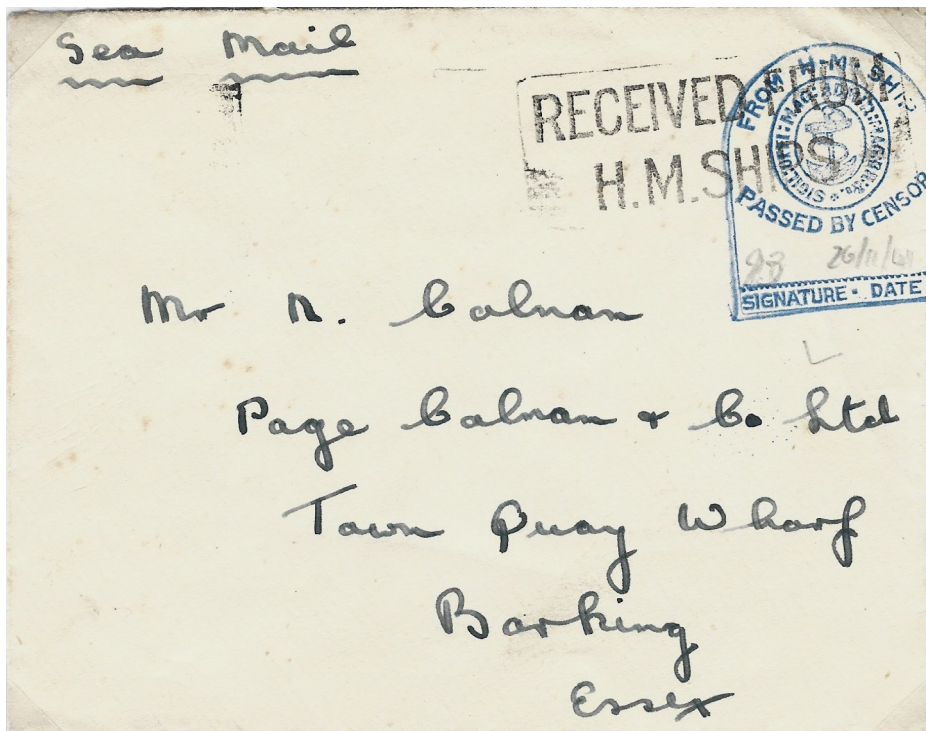 Sea Mail
RECEIVED FROM
H.M. SHIPS
FROM H·M· SHIP
PASSED BY CENSOR
26/11/41
SIGNATURE · DATE
Mr N. Calnan
Page Calnan & Co Ltd
Town Quay Wharf
Barking
Essex